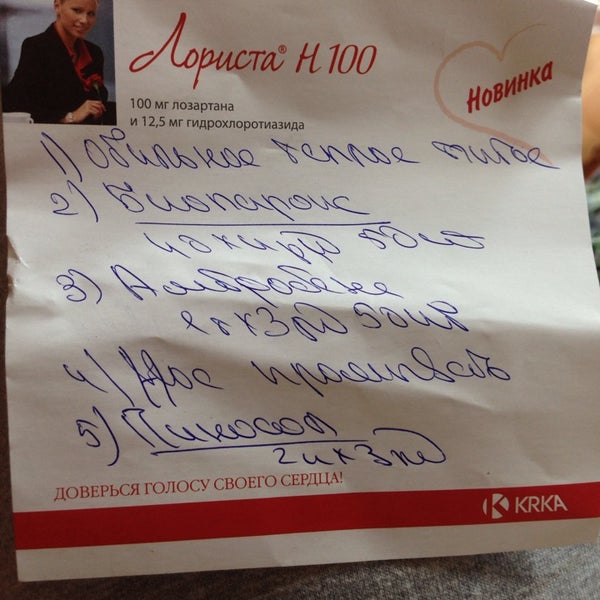 Лориста® Н 100
Новинка
100 мг лозартана
и 12,5 мг гидрохлоротиазида
1) Обильное теплое питье
2) Биопарокс
3) Амбробене
4) Нос промывать
5) Пиносол
2 к х 3 р/д
ДОВЕРЬСЯ ГОЛОСУ СВОЕГО СЕРДЦА!
KRKA